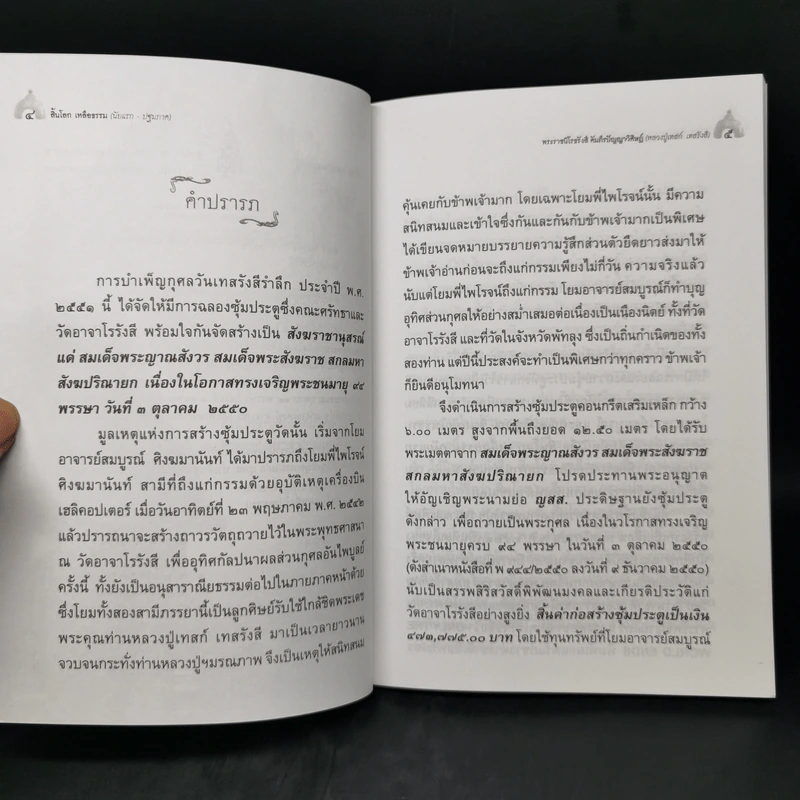 ๔ สิ้นโลก เหลือธรรม (นัยแรก - ปฐมภาค)
คำปรารภ
การบำเพ็ญกุศลวันเทสรังสีรำลึก ประจำปี พ.ศ.
๒๕๕๑ นี้ ได้จัดให้มีการฉลองซุ้มประตูซึ่งคณะศรัทธาและ
วัดอาจาโรรังสี พร้อมใจกันจัดสร้างเป็น สังฆราชานุสรณ์
แด่ สมเด็จพระญาณสังวร สมเด็จพระสังฆราช สกลมหา
สังฆปริณายก เนื่องในโอกาสทรงเจริญพระชนมายุ ๙๔
พรรษา วันที่ ๓ ตุลาคม ๒๕๕๐
มูลเหตุแห่งการสร้างซุ้มประตูวัดนั้น เริ่มจากโยม
อาจารย์สมบูรณ์ ศิงฆมานันท์ ได้มาปรารภถึงโยมพี่ไพโรจน์
ศิงฆมานันท์ สามีที่ถึงแก่กรรมด้วยอุบัติเหตุเครื่องบิน
เฮลิคอปเตอร์ เมื่อวันอาทิตย์ที่ ๒๓ พฤษภาคม พ.ศ. ๒๕๔๒
แล้วปรารถนาจะสร้างถาวรวัตถุถวายไว้ในพระพุทธศาสนา
ณ วัดอาจาโรรังสี เพื่ออุทิศกัลปนาผลส่วนกุศลอันไพบูลย์
ครั้งนี้ ทั้งยังเป็นอนุสาราณียธรรมต่อไปในภายภาคหน้าด้วย
ซึ่งโยมทั้งสองสามีภรรยานี้เป็นลูกศิษย์รับใช้ใกล้ชิดพระเดช
พระคุณท่านหลวงปู่เทสก์ เทสรังสี มาเป็นเวลายาวนาน
จวบจนกระทั่งท่านหลวงปู่ฯมรณภาพ จึงเป็นเหตุให้สนิทสนม
พระราชนิโรธรังสี คัมภีรปัญญาวิศิษฏ์ (หลวงปู่เทสก์ เทสรังสี) ๕
คุ้นเคยกับข้าพเจ้ามาก โดยเฉพาะโยมพี่ไพโรจน์นั้น มีความ
สนิทสนมและเข้าใจซึ่งกันและกันกับข้าพเจ้ามากเป็นพิเศษ
ได้เขียนจดหมายบรรยายความรู้สึกส่วนตัวยืดยาวส่งมาให้
ข้าพเจ้าอ่านก่อนจะถึงแก่กรรมเพียงไม่กี่วัน ความจริงแล้ว
นับแต่โยมพี่ไพโรจน์ถึงแก่กรรม โยมอาจารย์สมบูรณ์ก็ทำบุญ
อุทิศส่วนกุศลให้อย่างสม่ำเสมอต่อเนื่องเป็นเนืองนิตย์ ทั้งที่วัด
อาจาโรรังสี และที่วัดในจังหวัดพัทลุง ซึ่งเป็นถิ่นกำเนิดของทั้ง
สองท่าน แต่ปีนี้ประสงค์จะทำเป็นพิเศษกว่าทุกคราว ข้าพเจ้า
ก็ยินดีอนุโมทนา
จึงดำเนินการสร้างซุ้มประตูคอนกรีตเสริมเหล็ก กว้าง
๖.๐๐ เมตร สูงจากพื้นถึงยอด ๑๒.๕๐ เมตร โดยได้รับ
พระเมตตาจาก สมเด็จพระญาณสังวร สมเด็จพระสังฆราช
สกลมหาสังฆปริณายก โปรดประทานพระอนุญาต
ให้อัญเชิญพระนามย่อ ญสส. ประดิษฐานยังซุ้มประตู
ดังกล่าว เพื่อถวายเป็นพระกุศล เนื่องในวโรกาสทรงเจริญ
พระชนมายุครบ ๙๔ พรรษา ในวันที่ ๓ ตุลาคม ๒๕๕๐
(ดังสำเนาหนังสือที่ พ ๙๔๔/๒๕๕๐ ลงวันที่ ๙ ธันวาคม ๒๕๕๐)
นับเป็นสรรพสิริสวัสดิ์พิพัฒนมงคลและเกียรติประวัติแก่
วัดอาจาโรรังสีอย่างสูงยิ่ง สิ้นค่าก่อสร้างซุ้มประตูเป็นเงิน
๔๗๓,๗๗๕.๐๐ บาท โดยใช้ทุนทรัพย์ที่โยมอาจารย์สมบูรณ์